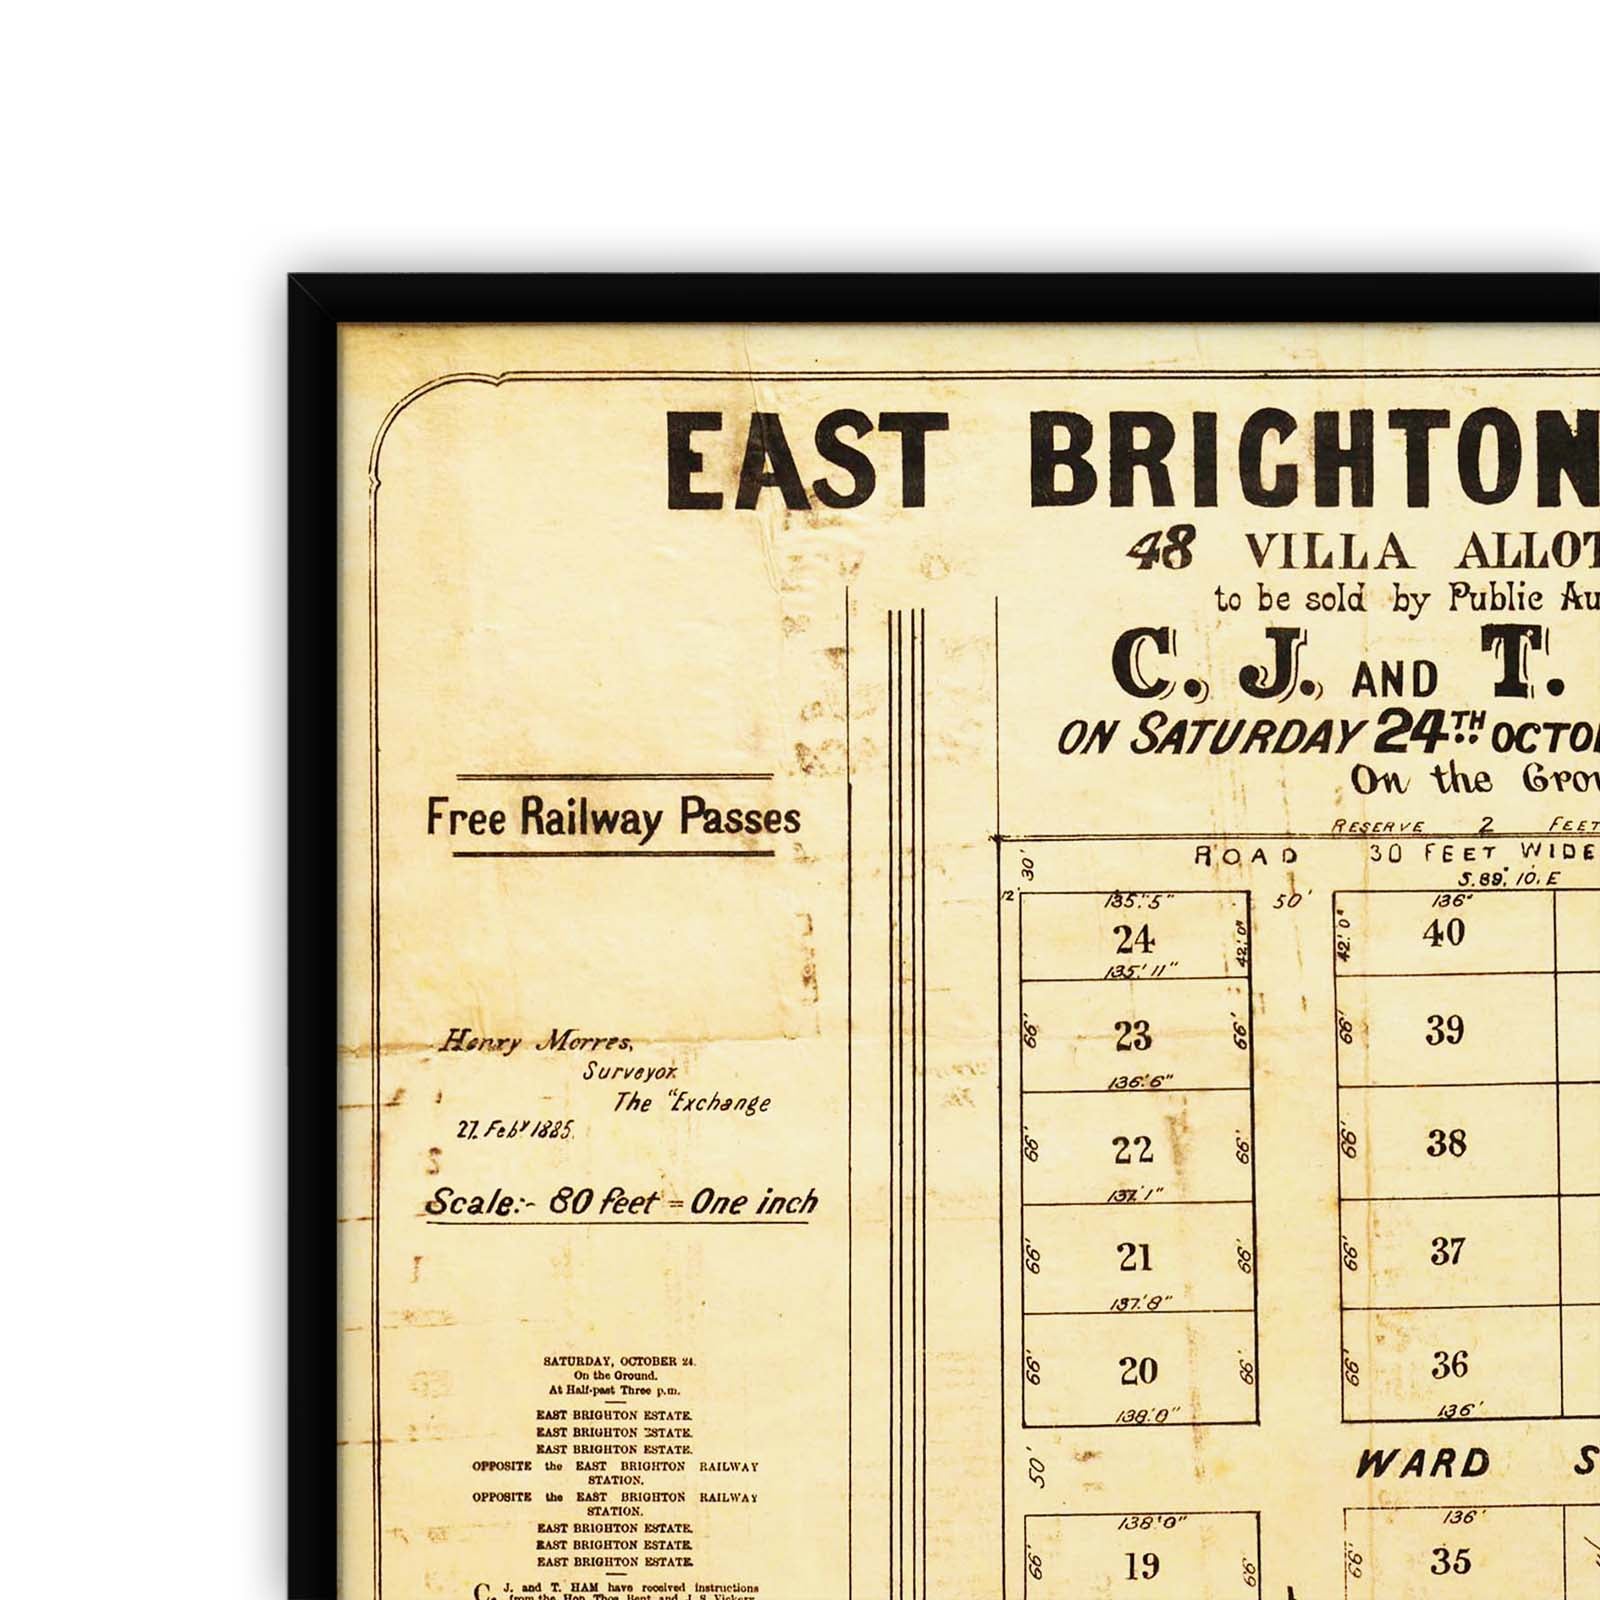 EAST BRIGHTON
48 VILLA ALLOT
to be sold by Public Au
C. J. AND T.
ON SATURDAY 24TH OCTO
On the Gro
Free Railway Passes
RESERVE 2 FEET
ROAD 30 FEET WIDE
S.89°.10'.E
30'
12
135'.5"
50'
136'
24
42'.0"
42'.0"
40
135'.11"
66'
23
66'
66'
39
136'.6"
66'
22
66'
66'
38
137'.1"
66'
21
66'
66'
37
137'.8"
66'
20
66'
66'
36
138'.0"
136'
50'
WARD S
138'0"
136'
66'
19
66'
66'
35
Henry Morres,
Surveyor.
The "Exchange
27. Feby 1885.
Scale:- 80 feet = One inch
SATURDAY, OCTOBER 24.
On the Ground.
At Half-past Three p.m.
EAST BRIGHTON ESTATE.
EAST BRIGHTON ESTATE.
EAST BRIGHTON ESTATE.
OPPOSITE the EAST BRIGHTON RAILWAY
STATION.
OPPOSITE the EAST BRIGHTON RAILWAY
STATION.
EAST BRIGHTON ESTATE.
EAST BRIGHTON ESTATE.
EAST BRIGHTON ESTATE.
C. J. and T. HAM have received instructions
from the Hon. Thos. Bent and J. S. Vickery